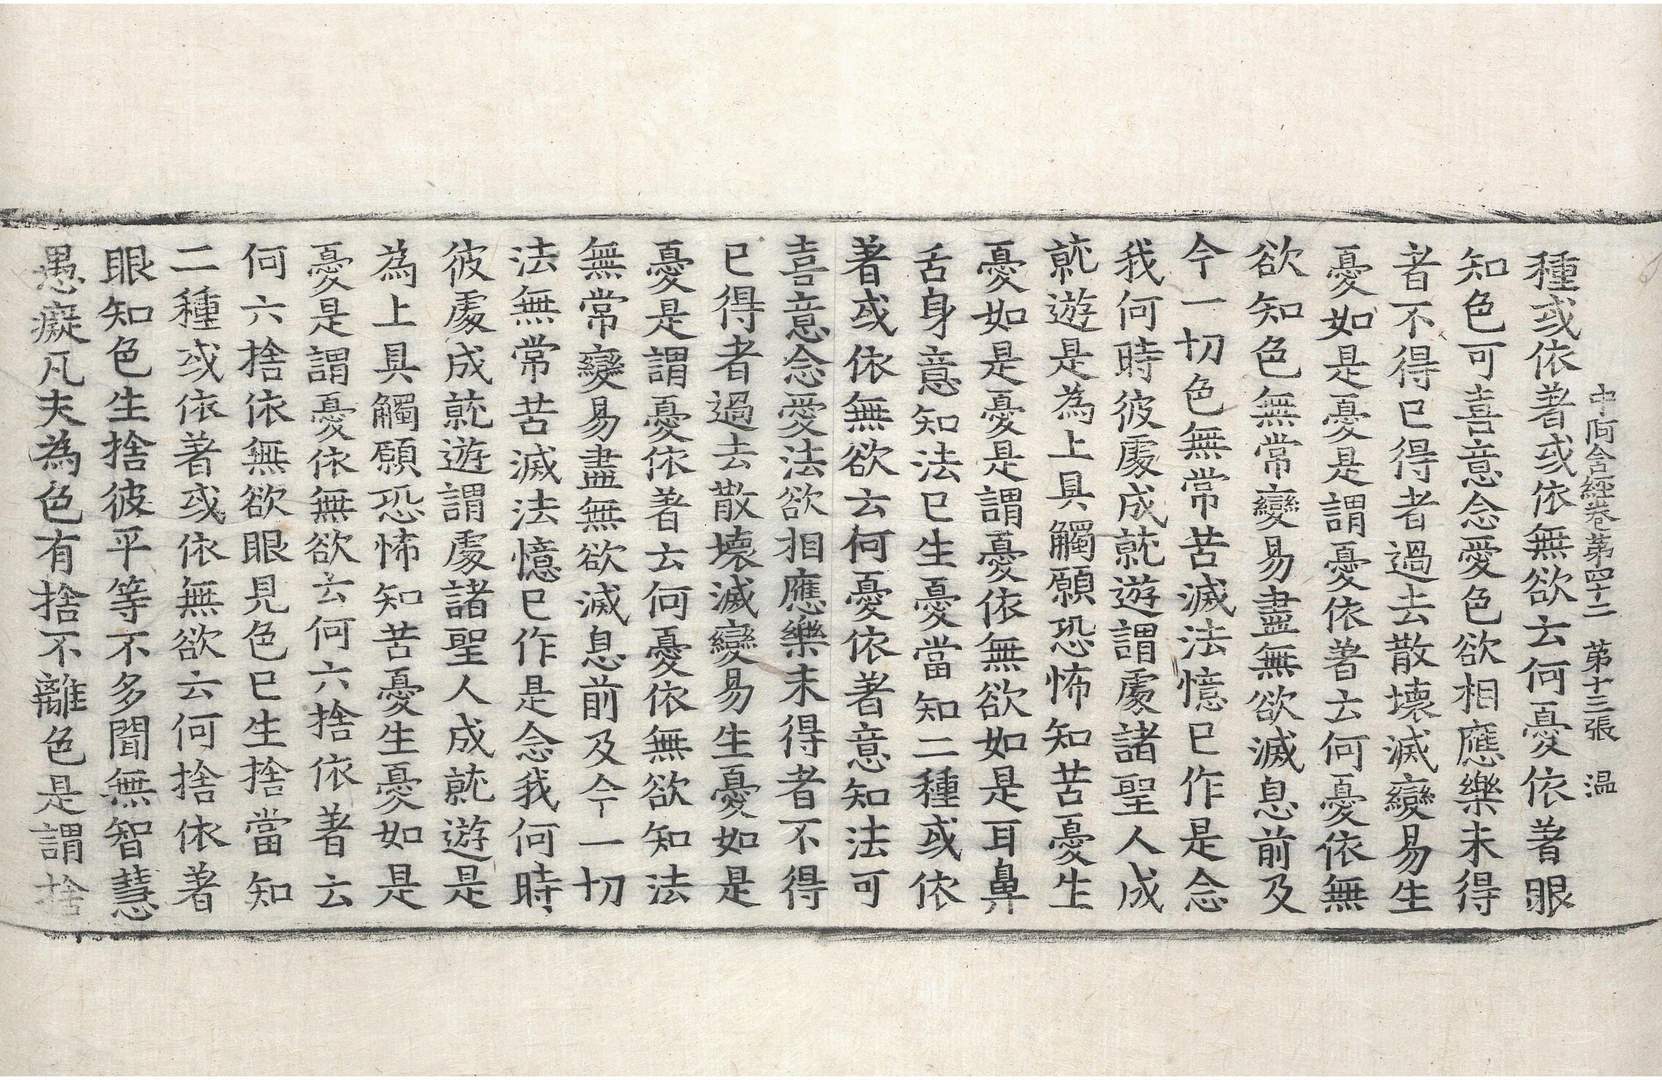 中阿含經卷第四十二 第十三張 温
種或依著或依無欲云何憂依著眼
知色可喜意念愛色欲相應樂未得
者不得已得者過去散壞滅變易生
憂如是憂是謂憂依著云何憂依無
欲知色無常變易盡無欲滅息前及
今一切色無常苦滅法憶已作是念
我何時彼處成就遊謂處諸聖人成
就遊是為上具觸願恐怖知苦憂生
憂如是憂是謂憂依無欲如是耳鼻
舌身意知法已生憂當知二種或依
著或依無欲云何憂依著意知法可
喜意念愛法欲相應樂未得者不得
已得者過去散壞滅變易生憂如是
憂是謂憂依著云何憂依無欲知法
無常變易盡無欲滅息前及今一切
法無常苦滅法憶已作是念我何時
彼處成就遊謂處諸聖人成就遊是
為上具觸願恐怖知苦憂生憂如是
憂是謂憂依無欲云何六捨依著云
何六捨依無欲眼見色已生捨當知
二種或依著或依無欲云何捨依著
眼知色生捨彼平等不多聞無智慧
愚癡凡夫為色有捨不離色是謂捨